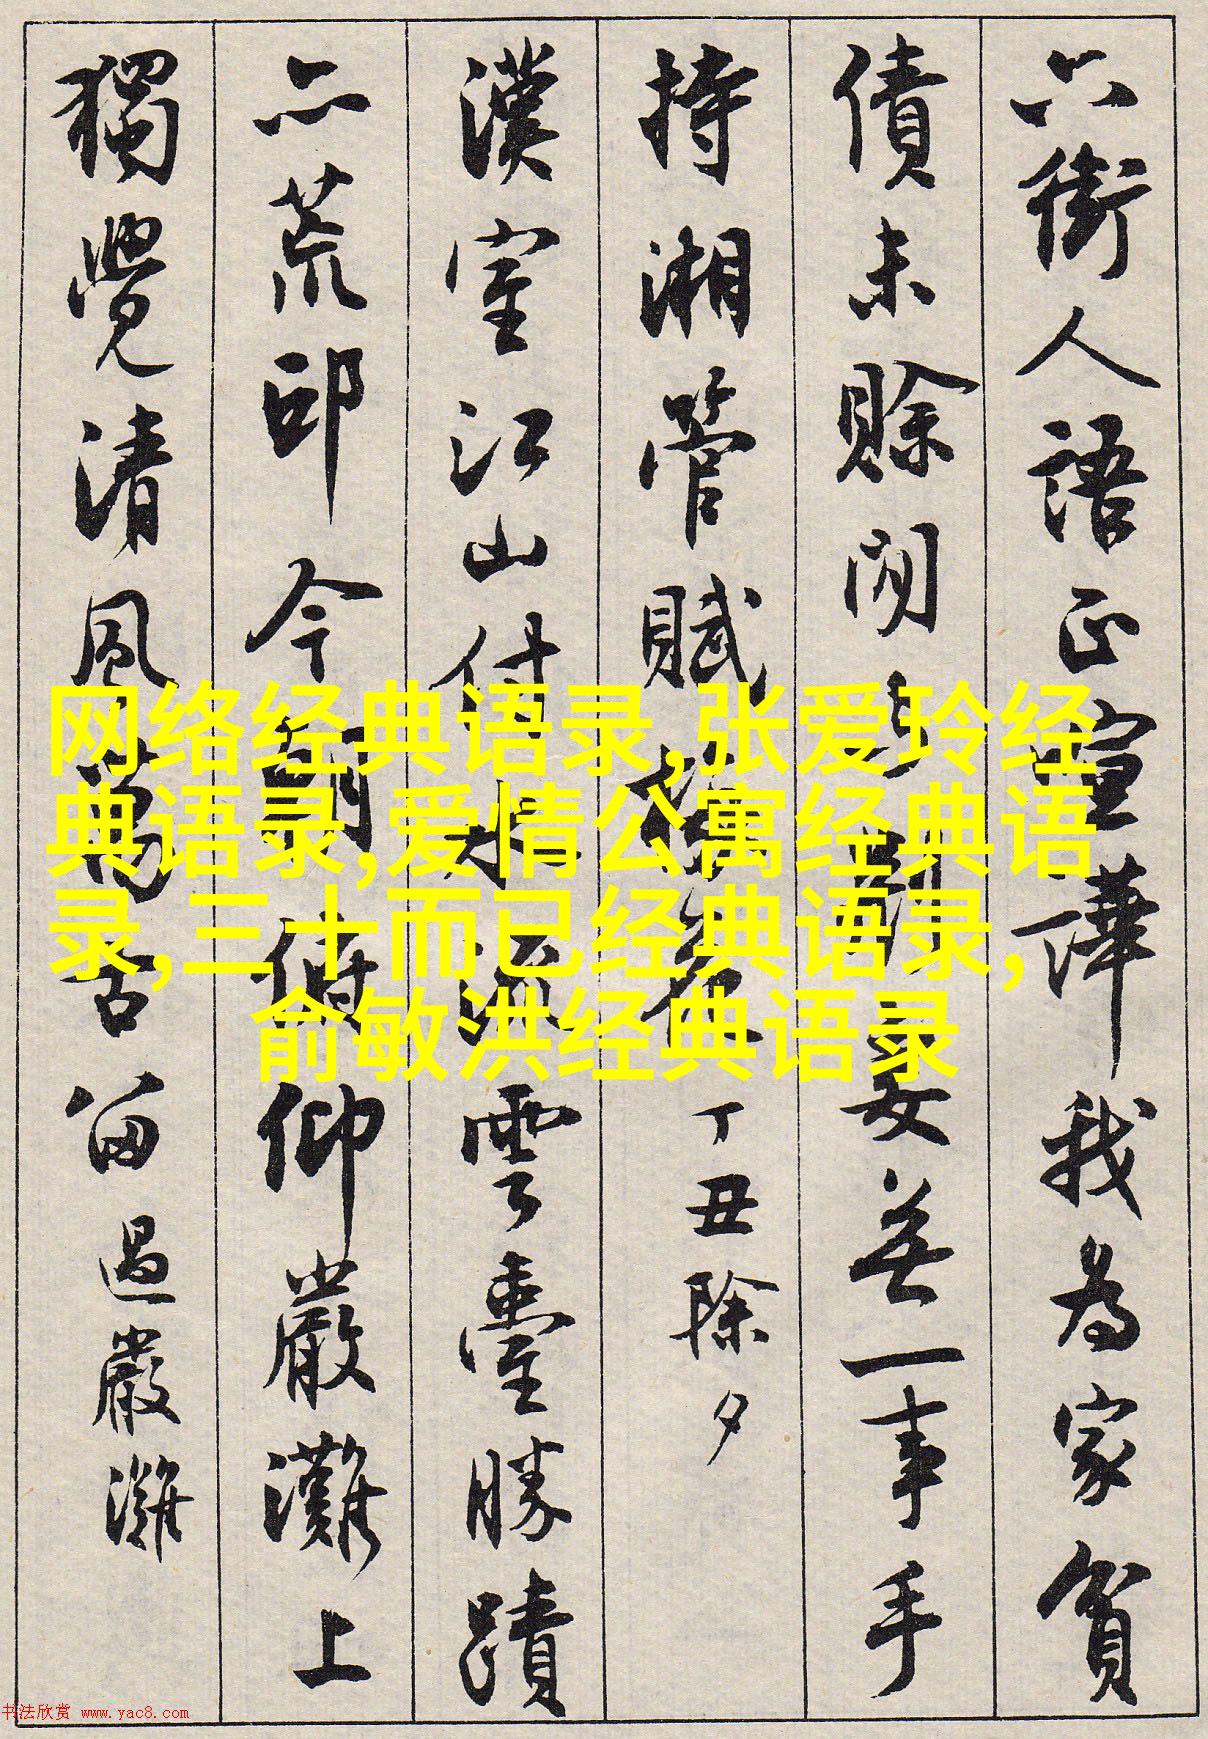 六街人語正喧譁我為家貧
債未賒閒妻無一事手
持湘管賦梅花丁丑除夕
漢室江山付水流雲臺勝蹟
亦荒邱今朝俯仰嚴灘上
獨覺清風萬古留過嚴灘
网络经典语录,张爱玲经
典语录,爱情公寓经典语
录,三十而已经典语录,
俞敏洪经典语录
书法欣赏 www.yac8.com